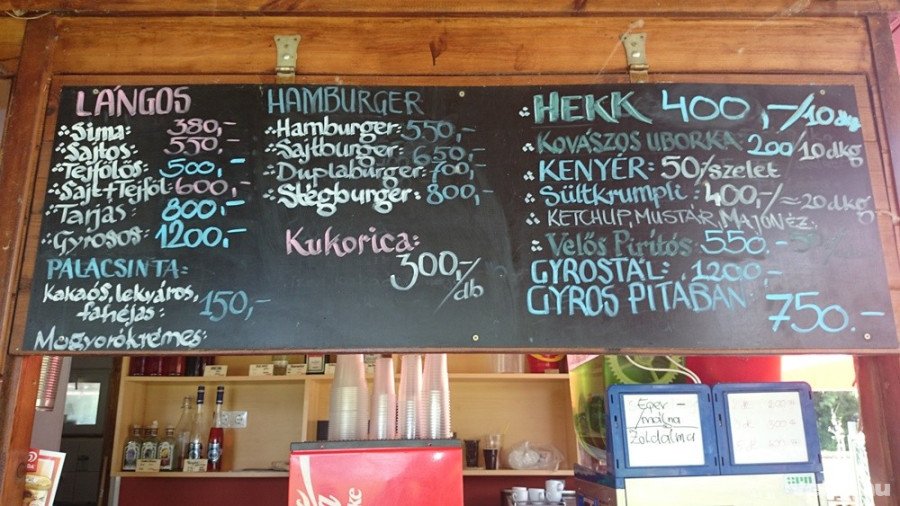 LÁNGOS
Sima: 380,-
Sajtos: 550,-
Tejfölös: 500,-
Sajt+Tejföl: 600,-
Tarjás: 800,-
Gyrosos: 1200,-
PALACSINTA:
Kakaós, lekváros,
fahéjas: 150,-
Mogyorókrémes:
HAMBURGER
Hamburger: 550,-
Sajtburger: 650,-
Duplaburger: 700,-
Stégburger: 800,-
Kukorica:
300,-/db
HEKK 400,-/10 dkg
KOVÁSZOS UBORKA: 200/10 dkg
KENYÉR: 50/szelet
Sültkrumpli: 400,-/=20 dkg
KETCHUP, MUSTÁR, MAJONÉZ:
Velős Pirítós 550.-
GYROSTÁL: 1200.-
GYROS PITÁBAN 750.-
Eper
málna
Zöldalma